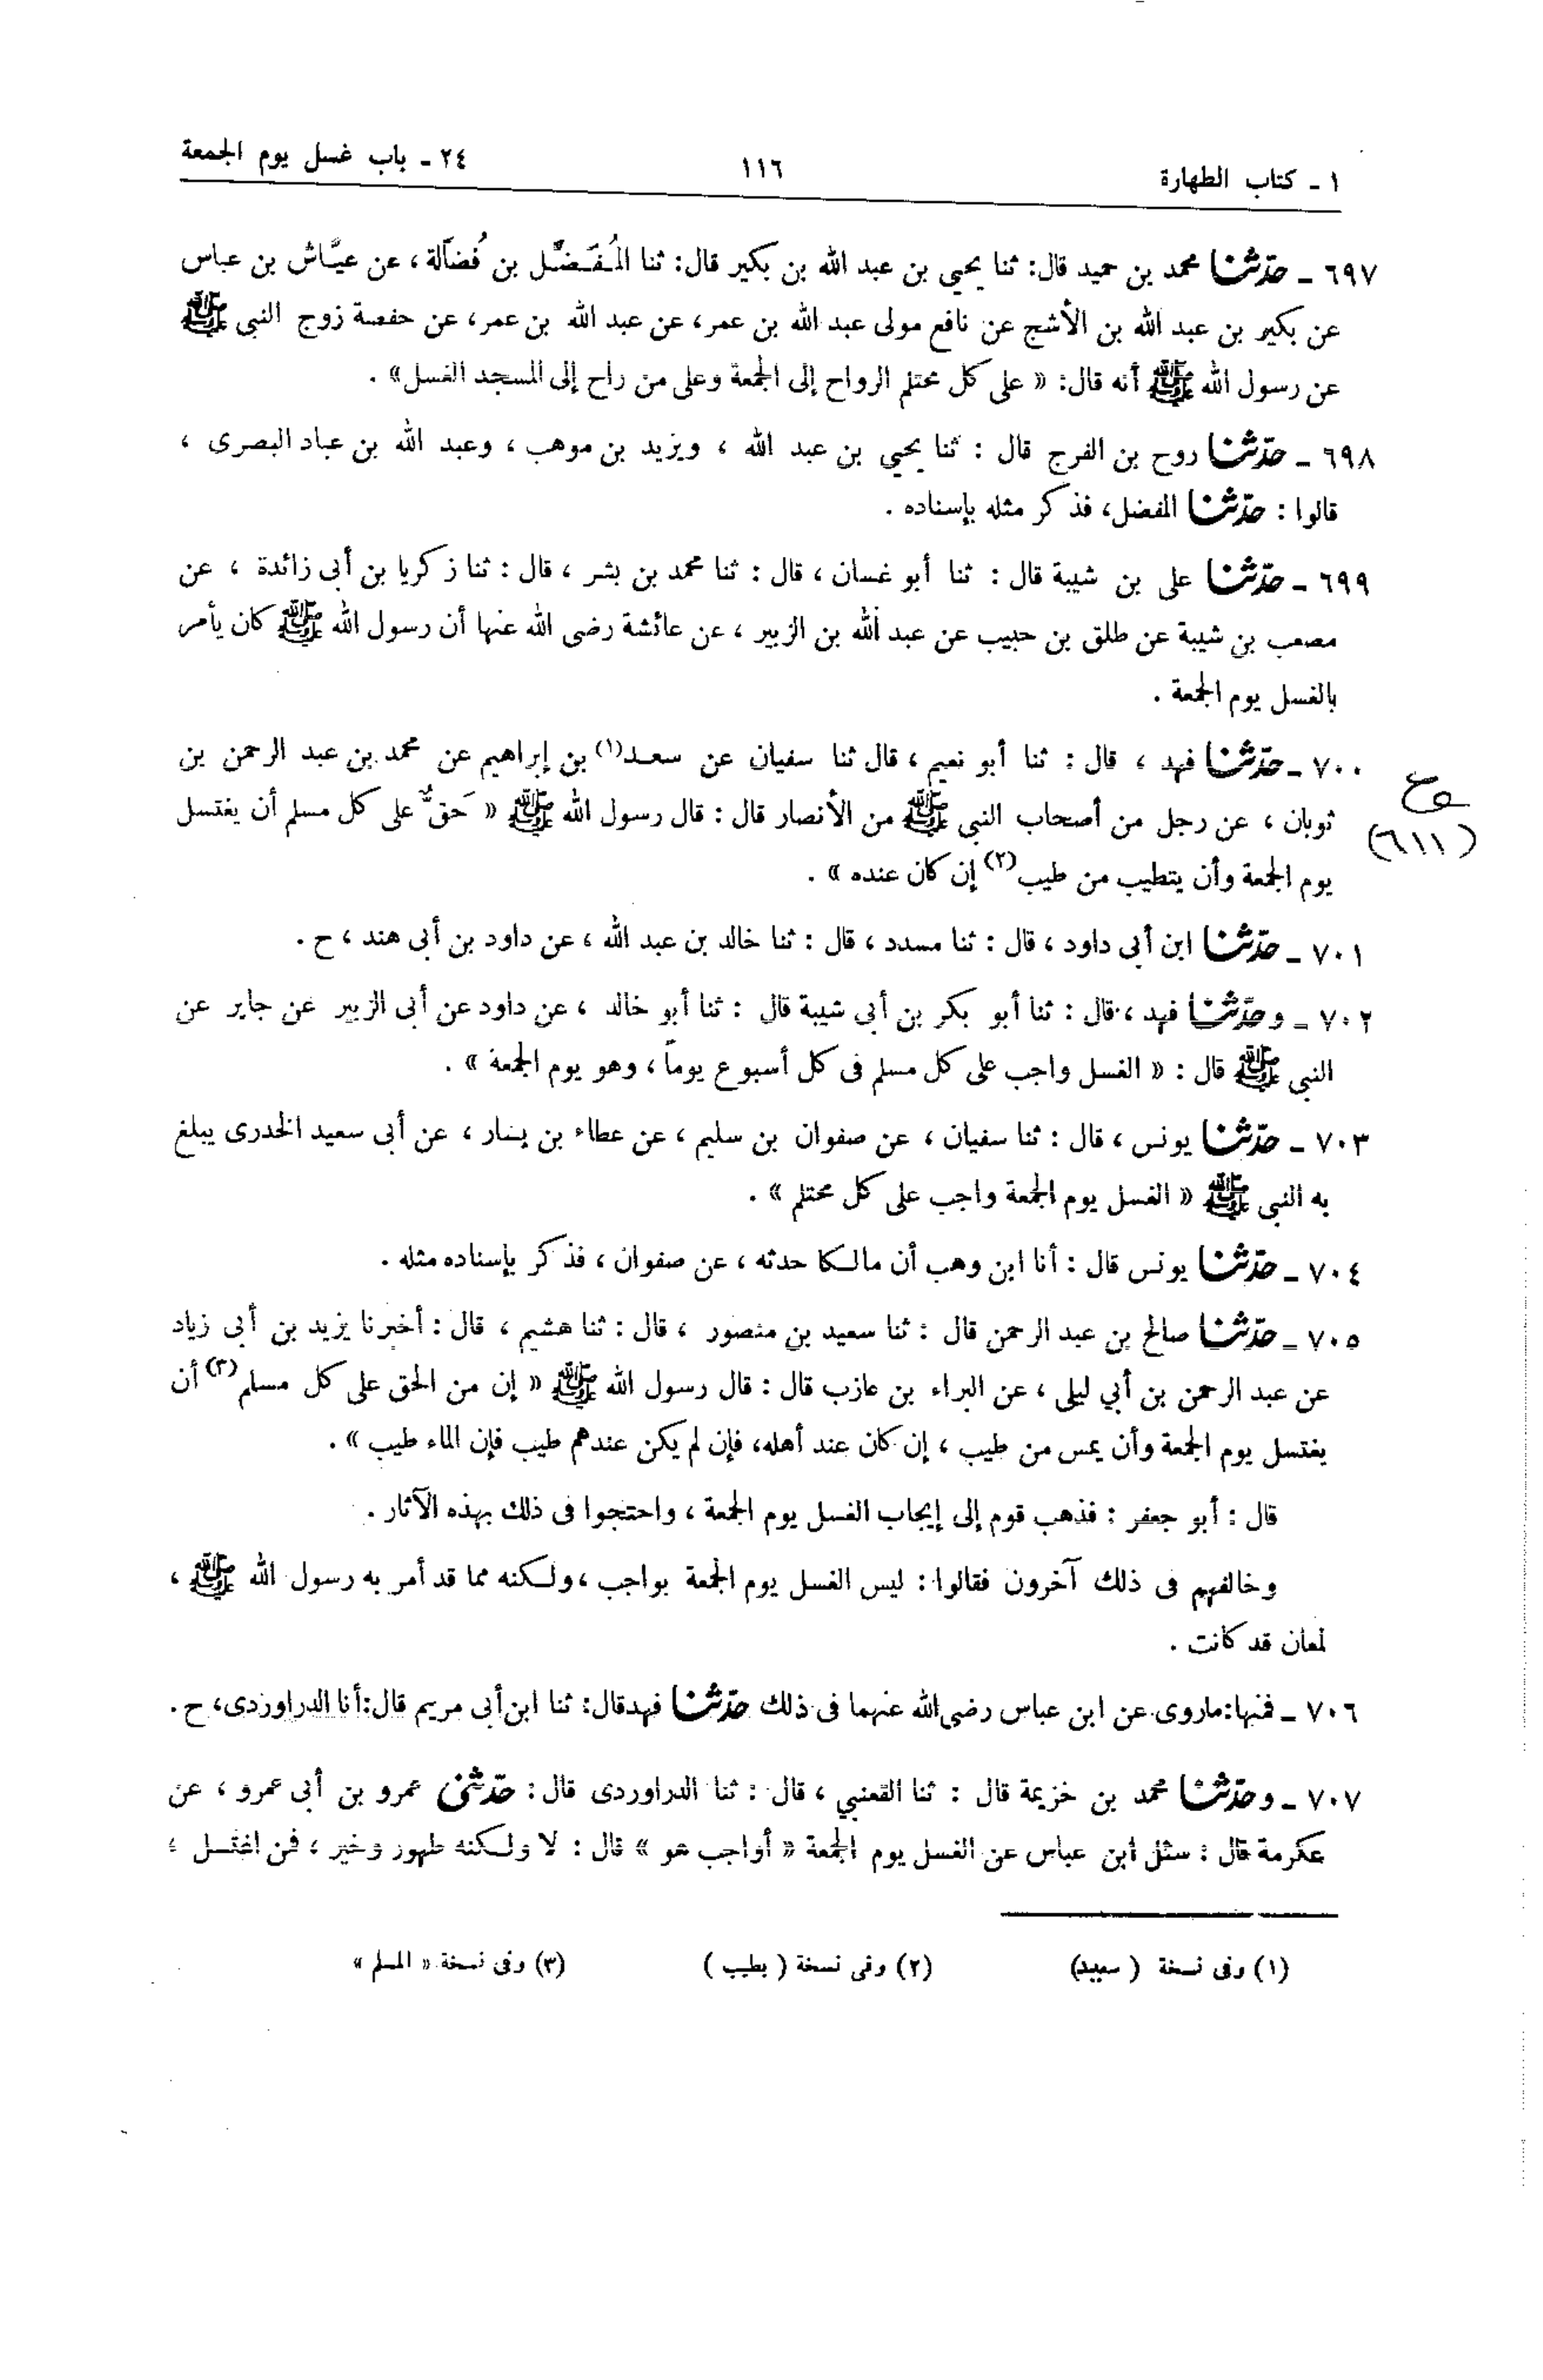 ١ ـ كتاب الطهارة ١١٦ ٢٤ ـ باب غسل يوم الجمعة
٦٩٧ ـ حدّثنا محمد بن حميد قال: ثنا يحيى بن عبد الله بن بكير قال: ثنا المُفَضَّل بن فُضَالة ، عن عيَّاش بن عباس
عن بكير بن عبد الله بن الأشج عن نافع مولى عبد الله بن عمر، عن عبد الله بن عمر، عن حفصة زوج النبى ﷺ
عن رسول الله ﷺ أنه قال: « على كل محتلم الرواح إلى الجمعة وعلى من راح إلى المسجد الغسل» .
٦٩٨ ـ حدّثنا روح بن الفرج قال : ثنا يحيى بن عبد الله ، ويزيد بن موهب ، وعبد الله بن عباد البصرى ،
قالوا : حدّثنا المفضل، فذكر مثله بإسناده .
٦٩٩ ـ حدّثنا على بن شيبة قال : ثنا أبو غسان ، قال : ثنا محمد بن بشر ، قال : ثنا زكريا بن أبى زائدة ، عن
مصعب بن شيبة عن طلق بن حبيب عن عبد الله بن الزبير ، عن عائشة رضى الله عنها أن رسول الله ﷺ كان يأمر
بالغسل يوم الجمعة .
٧٠٠ ـ حدّثنا فهد ، قال : ثنا أبو نعيم ، قال ثنا سفيان عن سعد(١) بن إبراهيم عن محمد بن عبد الرحمن بن
ثوبان ، عن رجل من أصحاب النبى ﷺ من الأنصار قال : قال رسول الله ﷺ « حَقٌّ على كل مسلم أن يغتسل
(٦١١)
يوم الجمعة وأن يتطيب من طيب(٢) إن كان عنده » .
٧٠١ ـ حدّثنا ابن أبى داود ، قال : ثنا مسدد ، قال : ثنا خالد بن عبد الله ، عن داود بن أبى هند ، ح .
٧٠٢ ـ وحدّثنا فهد ، قال : ثنا أبو بكر بن أبى شيبة قال : ثنا أبو خالد ، عن داود عن أبى الزبير عن جابر عن
النبى ﷺ قال : « الغسل واجب على كل مسلم فى كل أسبوع يوماً ، وهو يوم الجمعة » .
٧٠٣ ـ حدّثنا يونس ، قال : ثنا سفيان ، عن صفوان بن سليم ، عن عطاء بن يسار ، عن أبى سعيد الخدرى يبلغ
به النبى ﷺ « الغسل يوم الجمعة واجب على كل محتلم » .
٧٠٤ ـ حدّثنا يونس قال : أنا ابن وهب أن مالكا حدثه ، عن صفوان ، فذكر بإسناده مثله .
٧٠٥ ـ حدّثنا صالح بن عبد الرحمن قال : ثنا سعيد بن منصور ، قال : ثنا هشيم ، قال : أخبرنا يزيد بن أبى زياد
عن عبد الرحمن بن أبي ليلى ، عن البراء بن عازب قال : قال رسول الله ﷺ « إن من الحق على كل مسلم(٣) أن
يغتسل يوم الجمعة وأن يمس من طيب ، إن كان عند أهله، فإن لم يكن عندهم طيب فإن الماء طيب » .
قال : أبو جعفر : فذهب قوم إلى إيجاب الغسل يوم الجمعة ، واحتجوا فى ذلك بهذه الآثار .
وخالفهم فى ذلك آخرون فقالوا : ليس الغسل يوم الجمعة بواجب ، ولكنه مما قد أمر به رسول الله ﷺ ،
لمعان قد كانت .
٧٠٦ ـ فمنها: ماروى عن ابن عباس رضى الله عنهما فى ذلك حدّثنا فهد قال: ثنا ابن أبى مريم قال: أنا الدراوردى، ح .
٧٠٧ ـ وحدّثنا محمد بن خزيمة قال : ثنا القعنبي ، قال : ثنا الدراوردى قال : حدّثنى عمرو بن أبى عمرو ، عن
عكرمة قال : سئل ابن عباس عن الغسل يوم الجمعة « أواجب هو » قال : لا ولكنه طهور وخير ، فمن اغتسل ،
(١) وفى نسخة ( سعيد) (٢) وفى نسخة ( بطيب ) (٣) وفى نسخة « المسلم »